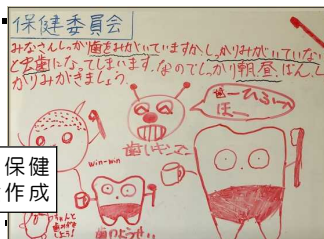 保健委員会
みなさんしっかり歯をみがいていますか。しっかりみがいていない
と虫歯になってしまいます。なのでしっかり朝、昼、ばん、し
かりみがきましょう。
歯ーひるぃー
ほー
歯バイキンマン
win-win
保健
作成
歯のようせい